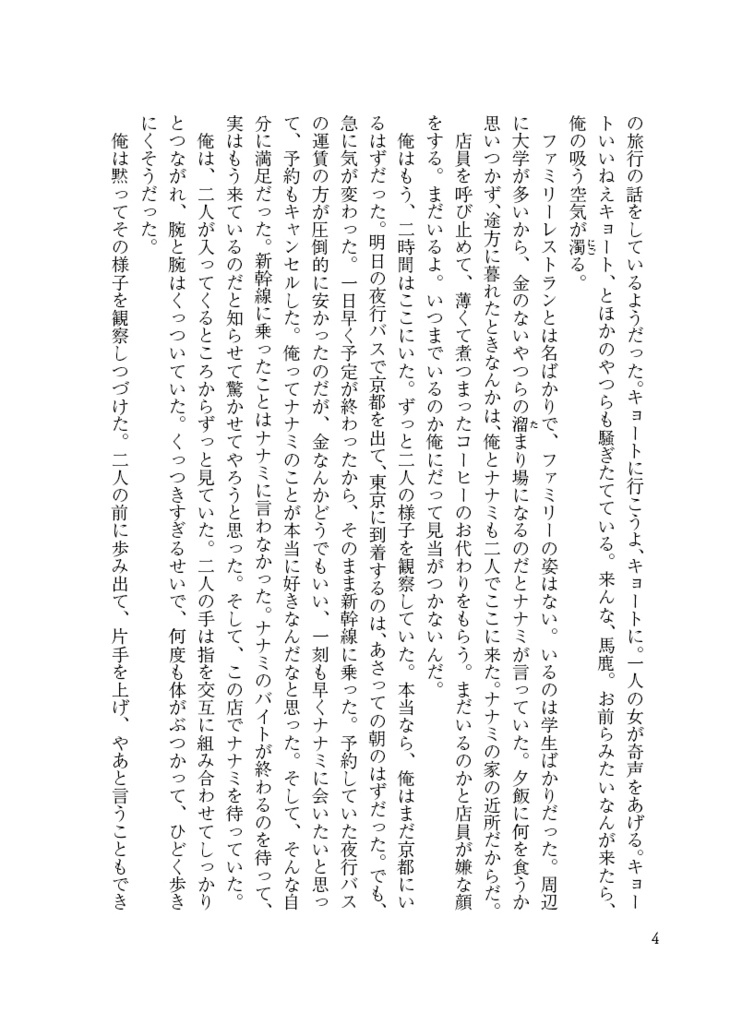 の旅行の話をしているようだった。キョートに行こうよ、キョートに。一人の女が奇声をあげる。キョー
トいいねえキョート、とほかのやつらも騒ぎたてている。来んな、馬鹿。お前らみたいなんが来たら、
俺の吸う空気が濁る。
ファミリーレストランとは名ばかりで、ファミリーの姿はない。いるのは学生ばかりだった。周辺
に大学が多いから、金のないやつらの溜まり場になるのだとナナミが言っていた。夕飯に何を食うか
思いつかず、途方に暮れたときなんかは、俺とナナミも二人でここに来た。ナナミの家の近所だからだ。
店員を呼び止めて、薄くて煮つまったコーヒーのお代わりをもらう。まだいるのかと店員が嫌な顔
をする。まだいるよ。いつまでいるのか俺にだって見当がつかないんだ。
俺はもう、二時間はここにいた。ずっと二人の様子を観察していた。本当なら、俺はまだ京都にい
るはずだった。明日の夜行バスで京都を出て、東京に到着するのは、あさっての朝のはずだった。でも、
急に気が変わった。一日早く予定が終わったから、そのまま新幹線に乗った。予約していた夜行バス
の運賃の方が圧倒的に安かったのだが、金なんかどうでもいい、一刻も早くナナミに会いたいと思っ
て、予約もキャンセルした。俺ってナナミのことが本当に好きなんだなと思った。そして、そんな自
分に満足だった。新幹線に乗ったことはナナミに言わなかった。ナナミのバイトが終わるのを待って、
実はもう来ているのだと知らせて驚かせてやろうと思った。そして、この店でナナミを待っていた。
俺は、二人が入ってくるところからずっと見ていた。二人の手は指を交互に組み合わせてしっかり
とつながれ、腕と腕はくっついていた。くっつきすぎるせいで、何度も体がぶつかって、ひどく歩き
にくそうだった。
俺は黙ってその様子を観察しつづけた。二人の前に歩み出て、片手を上げ、やあと言うこともでき
4